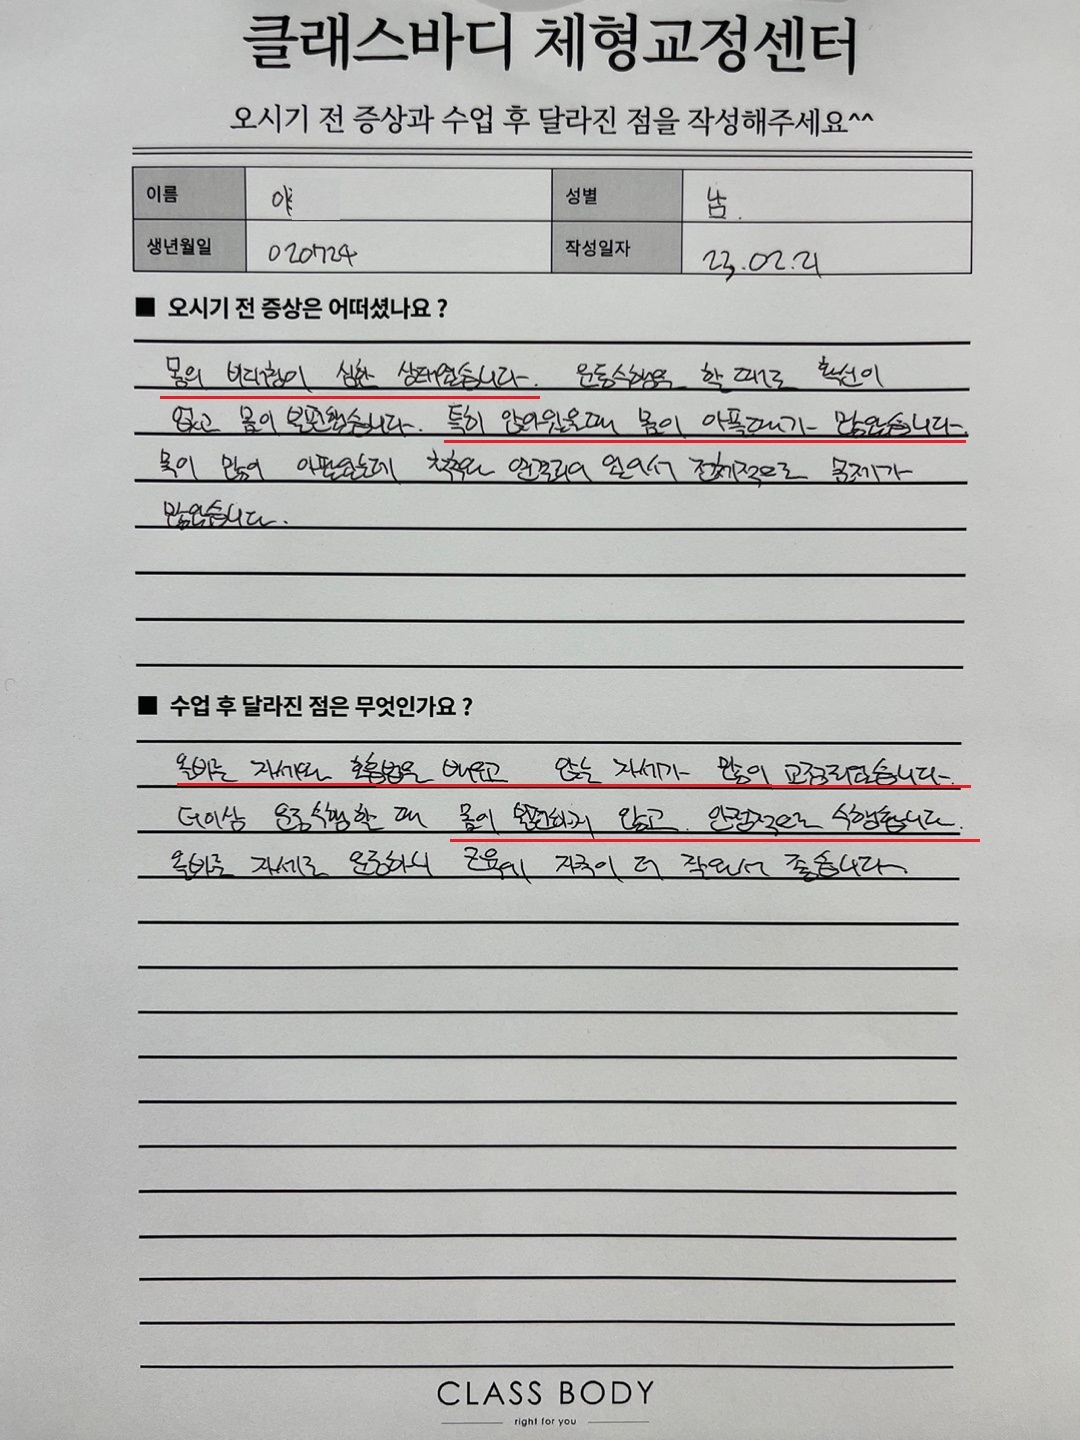 클래스바디 체형교정센터
오시기 전 증상과 수업 후 달라진 점을 작성해주세요^^
이름 성별 남.
생년월일 020724 작성일자 23.02.21
■ 오시기 전 증상은 어떠셨나요 ?
몸의 비대칭이 심한 상태였습니다. 운동수행을 할 때로 확신이
없고 몸이 불편했습니다. 특히 앉아있을때 몸이 아플때가 많았습니다.
목이 많이 아팠었는데 척추와 연결되어 있어서 전체적으로 문제가
많았습니다.
■ 수업 후 달라진 점은 무엇인가요 ?
올바른 자세와 호흡법을 배우고 앉는 자세가 많이 교정되었습니다.
더이상 운동수행할 때 몸이 불편하지 않고 안정적으로 수행합니다.
올바른 자세로 운동하니 근육에 자극이 더 잘와서 좋습니다.
CLASS BODY
right for you